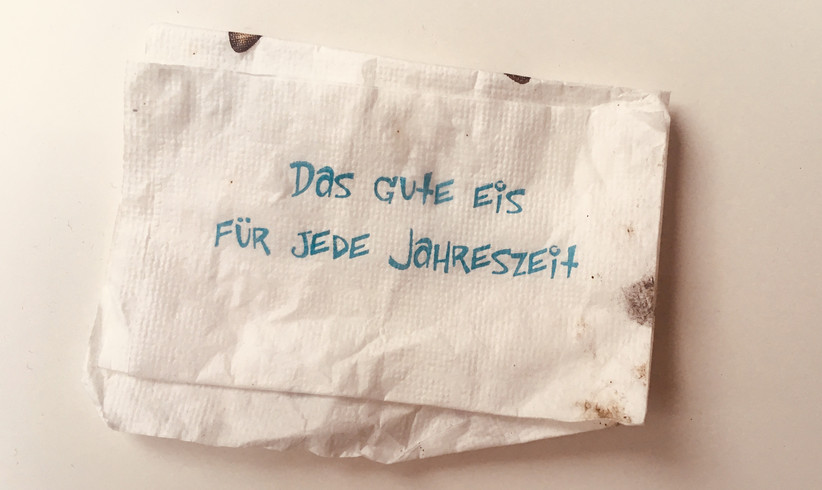 Das gute eis
für jede Jahreszeit